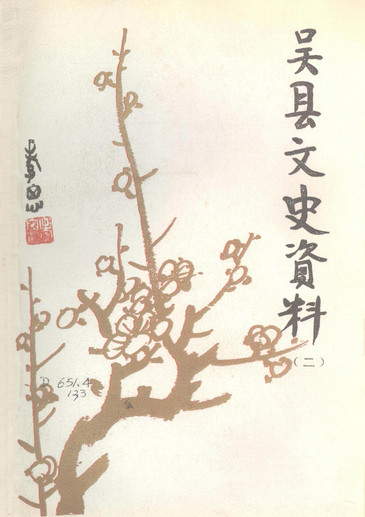 吴县文史資料
（二）
D 651.4
133